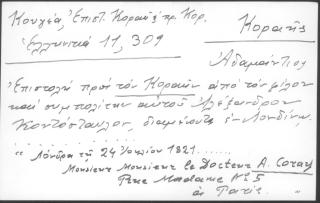 Κουγέα, Ἐπιστ. Κοραῆ πρ. Κορ.
Ἑλληνικά 11, 309
Κοραῆς
Ἀδαμάντιος
Ἐπιστολή πρός τόν Κοραῆν ἀπό τόν φίλον
καί συμπολίτην αὐτοῦ Ἀλέξανδρον
Κοντόσταυλον, διαμένοντα ἐν Λονδίνῳ.
.. Λόνδρα τῇ 24 Ἰουλίου 1821 ......
Monsieur Monsieur le Docteur A. Coray
Rue Madame No 5
à Paris. "